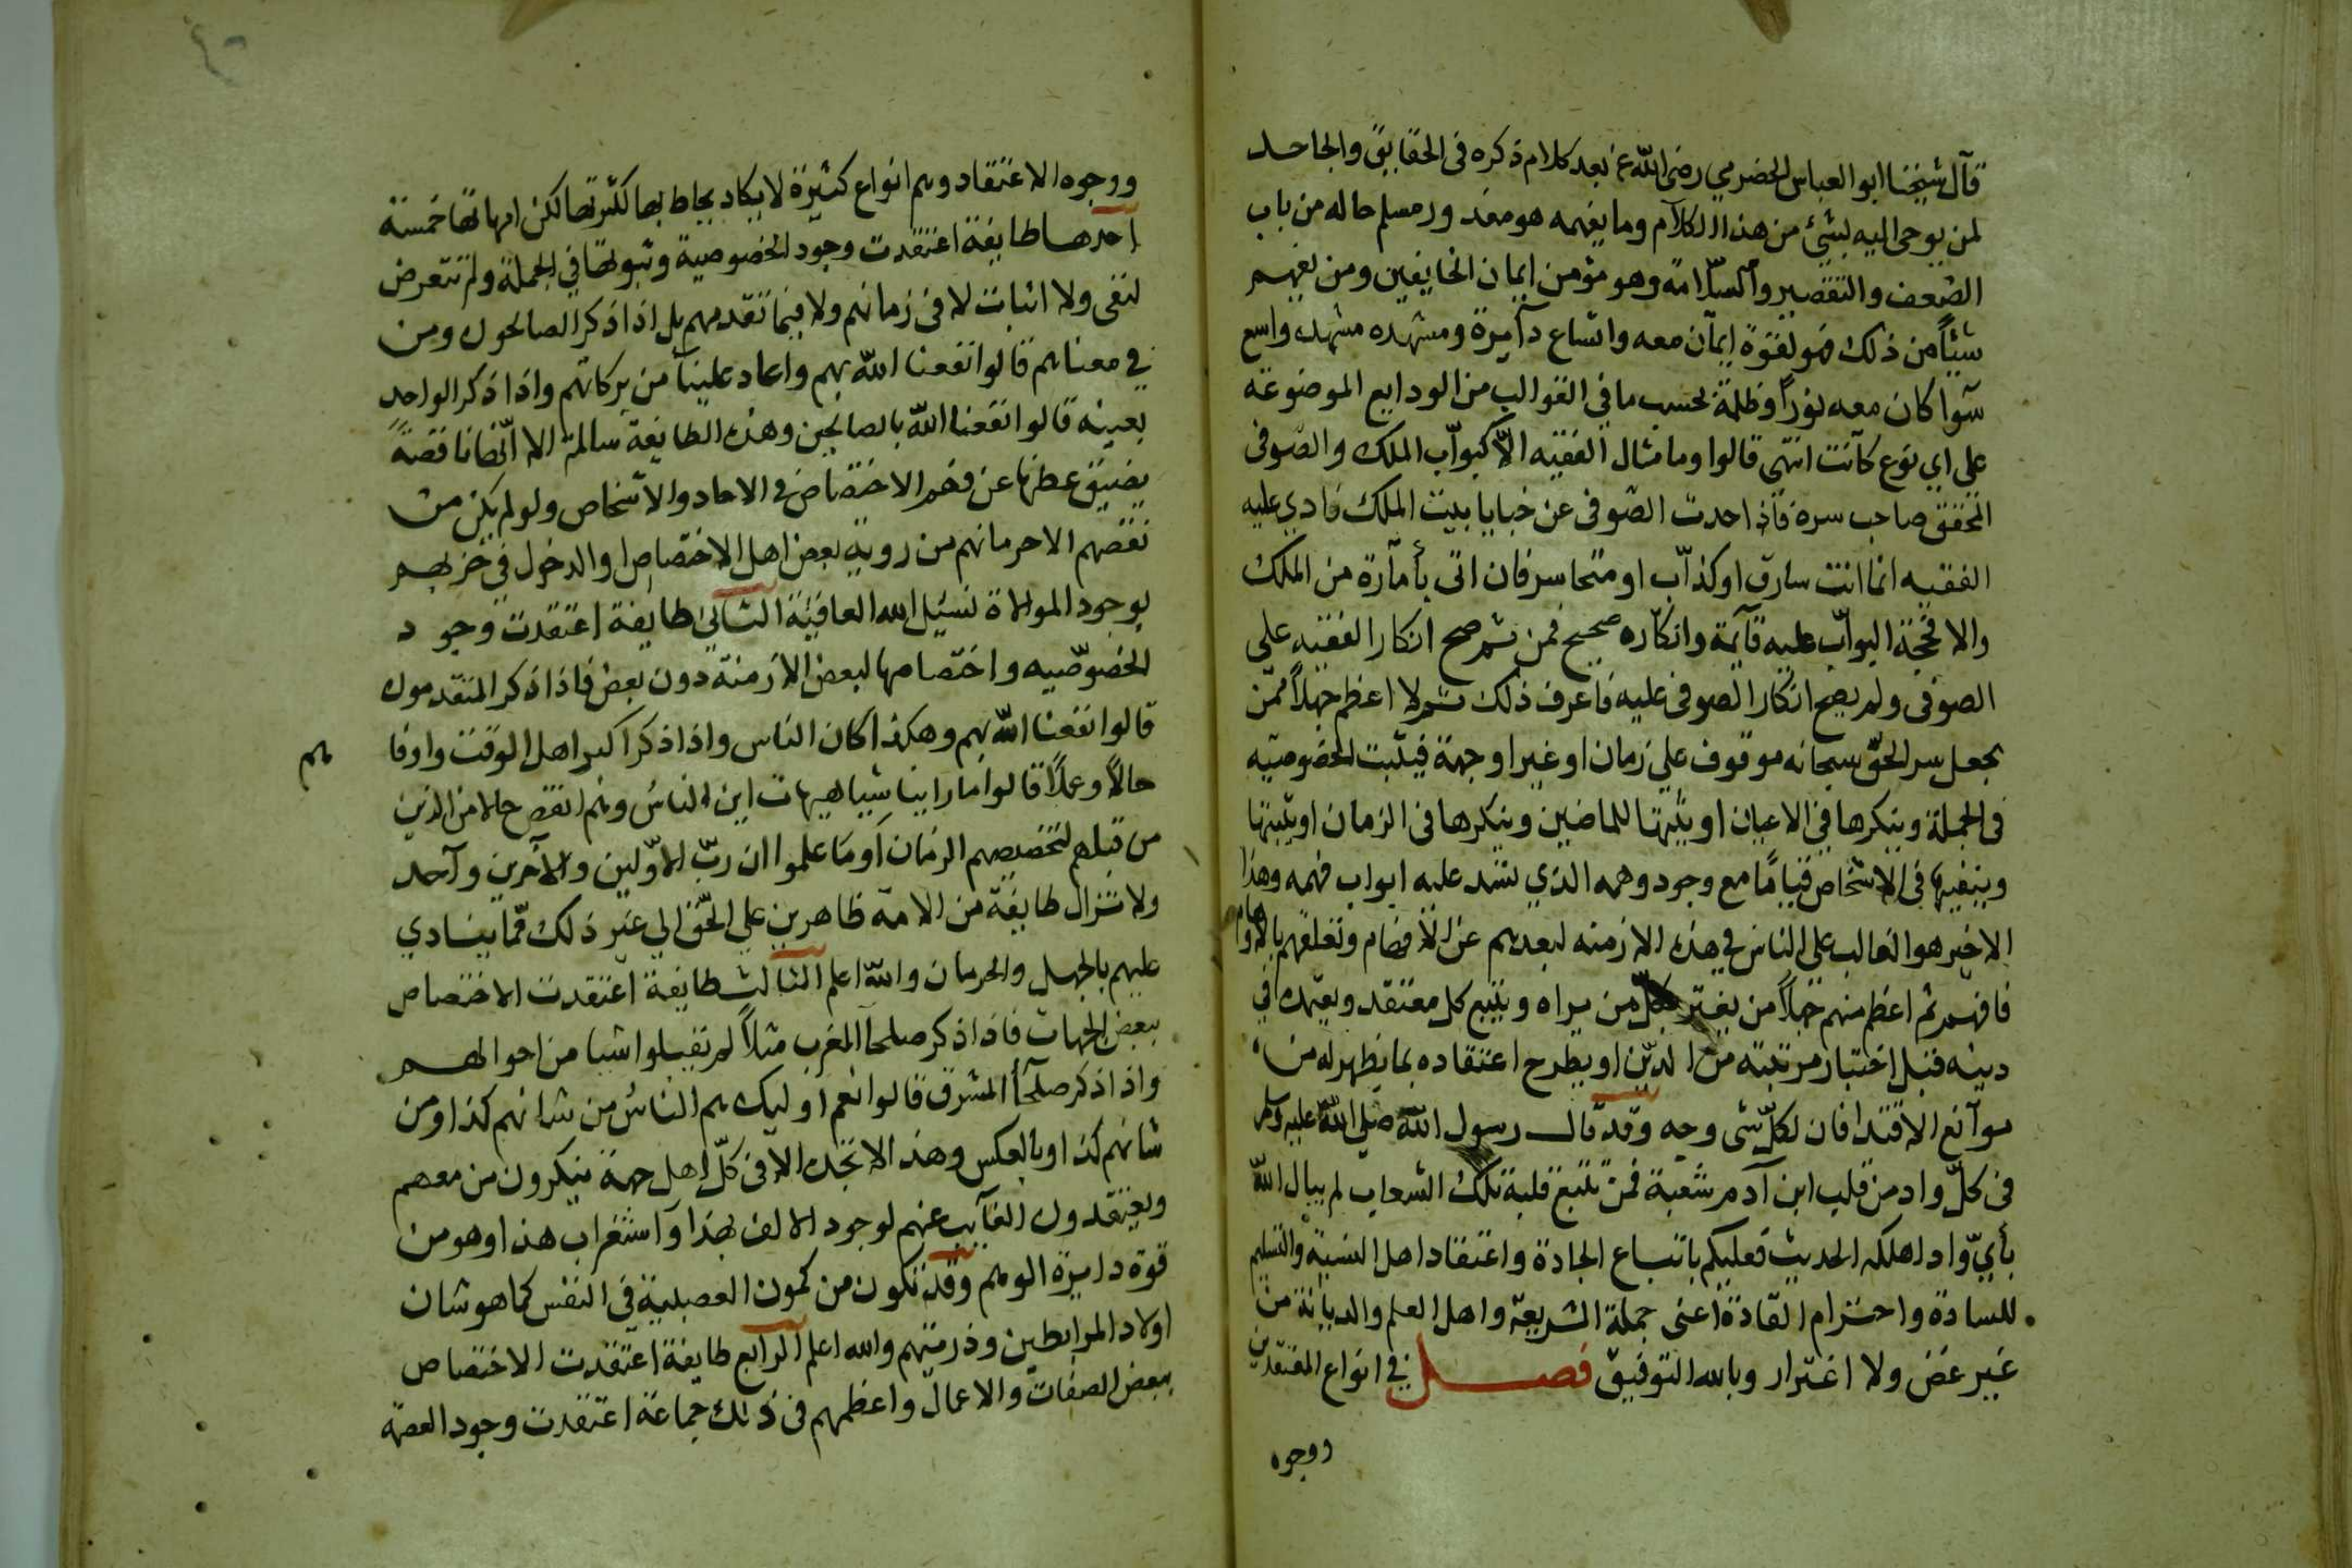 قال شيخنا ابو العباس الحضرمي رضى الله عنه بعد كلام ذكره فى الحقايق والجاحد
لمن يوحى اليه بشئ من هذا الكلام وما يفهمه هو معذور مسلم حاله من باب
الضعف والتقصير والسلامة وهو مؤمن ايمان الخايفين ومن يفهم
شيئاً من ذلك فهو لقوة ايمان معه واتساع دآيرة ومشهده مشهد واسع
سوا كان معه نوراً وظلمة بحسب ما فى القوالب من الودايع الموضوعة
على اي نوع كانت انتهى قالوا وما مثال الفقيه الا كبواب الملك والصوفى
المحقق صاحب سره فاذا حدث الصوفى عن خبايا بيت الملك نادي عليه
الفقيه انما انت سارق او كذاب او متجاسر فان اتى بأمارة من الملك
والا فحجة البواب عليه قآيمة وانكاره صحيح فمن ثم صح انكار الفقيه على
الصوفى ولم يصح انكار الصوفى عليه فاعرف ذلك ثم لا اعظم جهلاً ممن
يجعل سر الحق سبحانه موقوف على زمان او غير او جهة فيثبت الخصوصيه
فى الجملة وينكرها في الاعيان او يثبتها للماضين وينكرها فى الزمان او يثبتها
وينفيها فى الاشخاص قياما مع وجود وهمه الذي تنسد عليه ابواب فهمه وهذا
الاخير هو الغالب على الناس في هذه الازمنه لبعدهم عن الافهام وتعلقهم بالاوهام
فافهم ثم اعظم منهم جهلاً من يغتر بكل من يراه ويتبع كل معتقد ويعتمد في
دينه قبل اختبار مرتبته من الدين او يطرح اعتقاده بما يظهر له من
موآنع الاقتدا فان لكل شى وجه وقد قال رسول الله صلى الله عليه وسلم
فى كل واد من قلب ابن آدم شعبة فمن تتبع قلبه تلك الشعاب لم يبال الله
بأي واد اهلكه الحديث فعليكم باتباع الجادة واعتقاد اهل النسبة والتسليم
للسادة واحترام القادة اعنى حملة الشريعة واهل العلم والديانة من
غير غض ولا اغترار وبالله التوفيق فصل في انواع المعتقدين
ووجوه
ووجوه الاعتقاد وهم انواع كثيرة لا يكاد يحاط بها لكثرتها لكن امهاتها خمسة
احدها طايفة اعتقدت وجود الخصوصية وثبوتها في الجملة ولم تتعرض
لنفى ولا اثبات لا فى زمانهم ولا فيما تقدمهم بل اذا ذكر الصالحون ومن
في معناهم قالوا نفعنا الله بهم واعاد علينا من بركاتهم واذا ذكر الواحد
بعينه قالوا نفعنا الله بالصالحين وهذه الطايفة سالمة الا انها ناقصة
بضيق عطنها عن فهم الاختصاص في الاحاد والاشخاص ولو لم يكن من
نقصهم الا حرمانهم من روية بعض اهل الاختصاص والدخول في حزبهم
بوجود الموالاة نسئل الله العافية الثانى طايفة اعتقدت وجود
الخصوصيه واختصاصها لبعض الازمنة دون بعض فاذا ذكر المتقدمون
قالوا نفعنا الله بهم وهكذا كان الناس واذا ذكر اكبر اهل الوقت واوفاهم
حالاً وعملاً قالوا ما راينا شيا هيهات اين الناس وهم انقص حالا من الذين
من قبلهم لتخصيصهم الزمان اوما علموا ان رب الاولين والآخرين وآحد
ولا تزال طايفة من الامة ظاهرين على الحق الي غير ذلك مما ينادي
عليهم بالجهل والحرمان والله اعلم الثالث طايفة اعتقدت الاختصاص
ببعض الجهات فاذا ذكر صلحآ المغرب مثلاً لم تقبلوا شيا من احوالهم
واذا ذكر صلحآ المشرق قالوا نعم اوليك هم الناس من شانهم كذا ومن
شانهم كذا وبالعكس وهذا لا تجده الا فى كل اهل جهة ينكرون من معهم
ويعتقدون الغآيب عنهم لوجود الالف بهذا واستغراب هذا وهو من
قوة دايرة الوهم وقد تكون من كمون العصبية فى النفس كما هو شان
اولاد المرابطين وذريتهم والله اعلم الرابع طايفة اعتقدت الاختصاص
ببعض الصفات والاعمال واعظمهم فى ذلك جماعة اعتقدت وجود العصمة